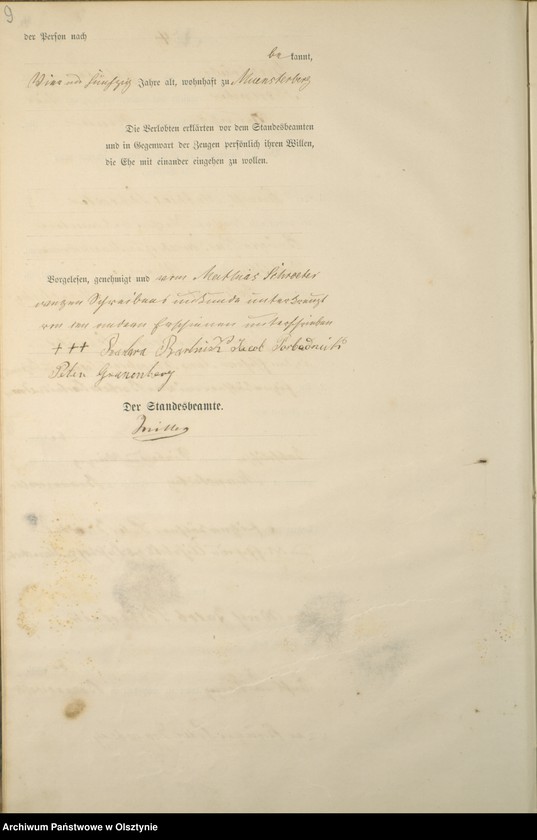 9
der Person nach
be kannt,
Vier und fünfzig Jahre alt, wohnhaft zu Muensterberg
Die Verlobten erklärten vor dem Standesbeamten
und in Gegenwart der Zeugen persönlich ihren Willen,
die Ehe mit einander eingehen zu wollen.
Vorgelesen, genehmigt und vom Mathias Schroeter
wegen Schreibens unkunde unterkreuzt
von den andern Erschienen unterschrieben
+++ Barbara Bartnick Jacob
Peter Granenberg
Der Standesbeamte.
Archiwum Państwowe w Olsztynie